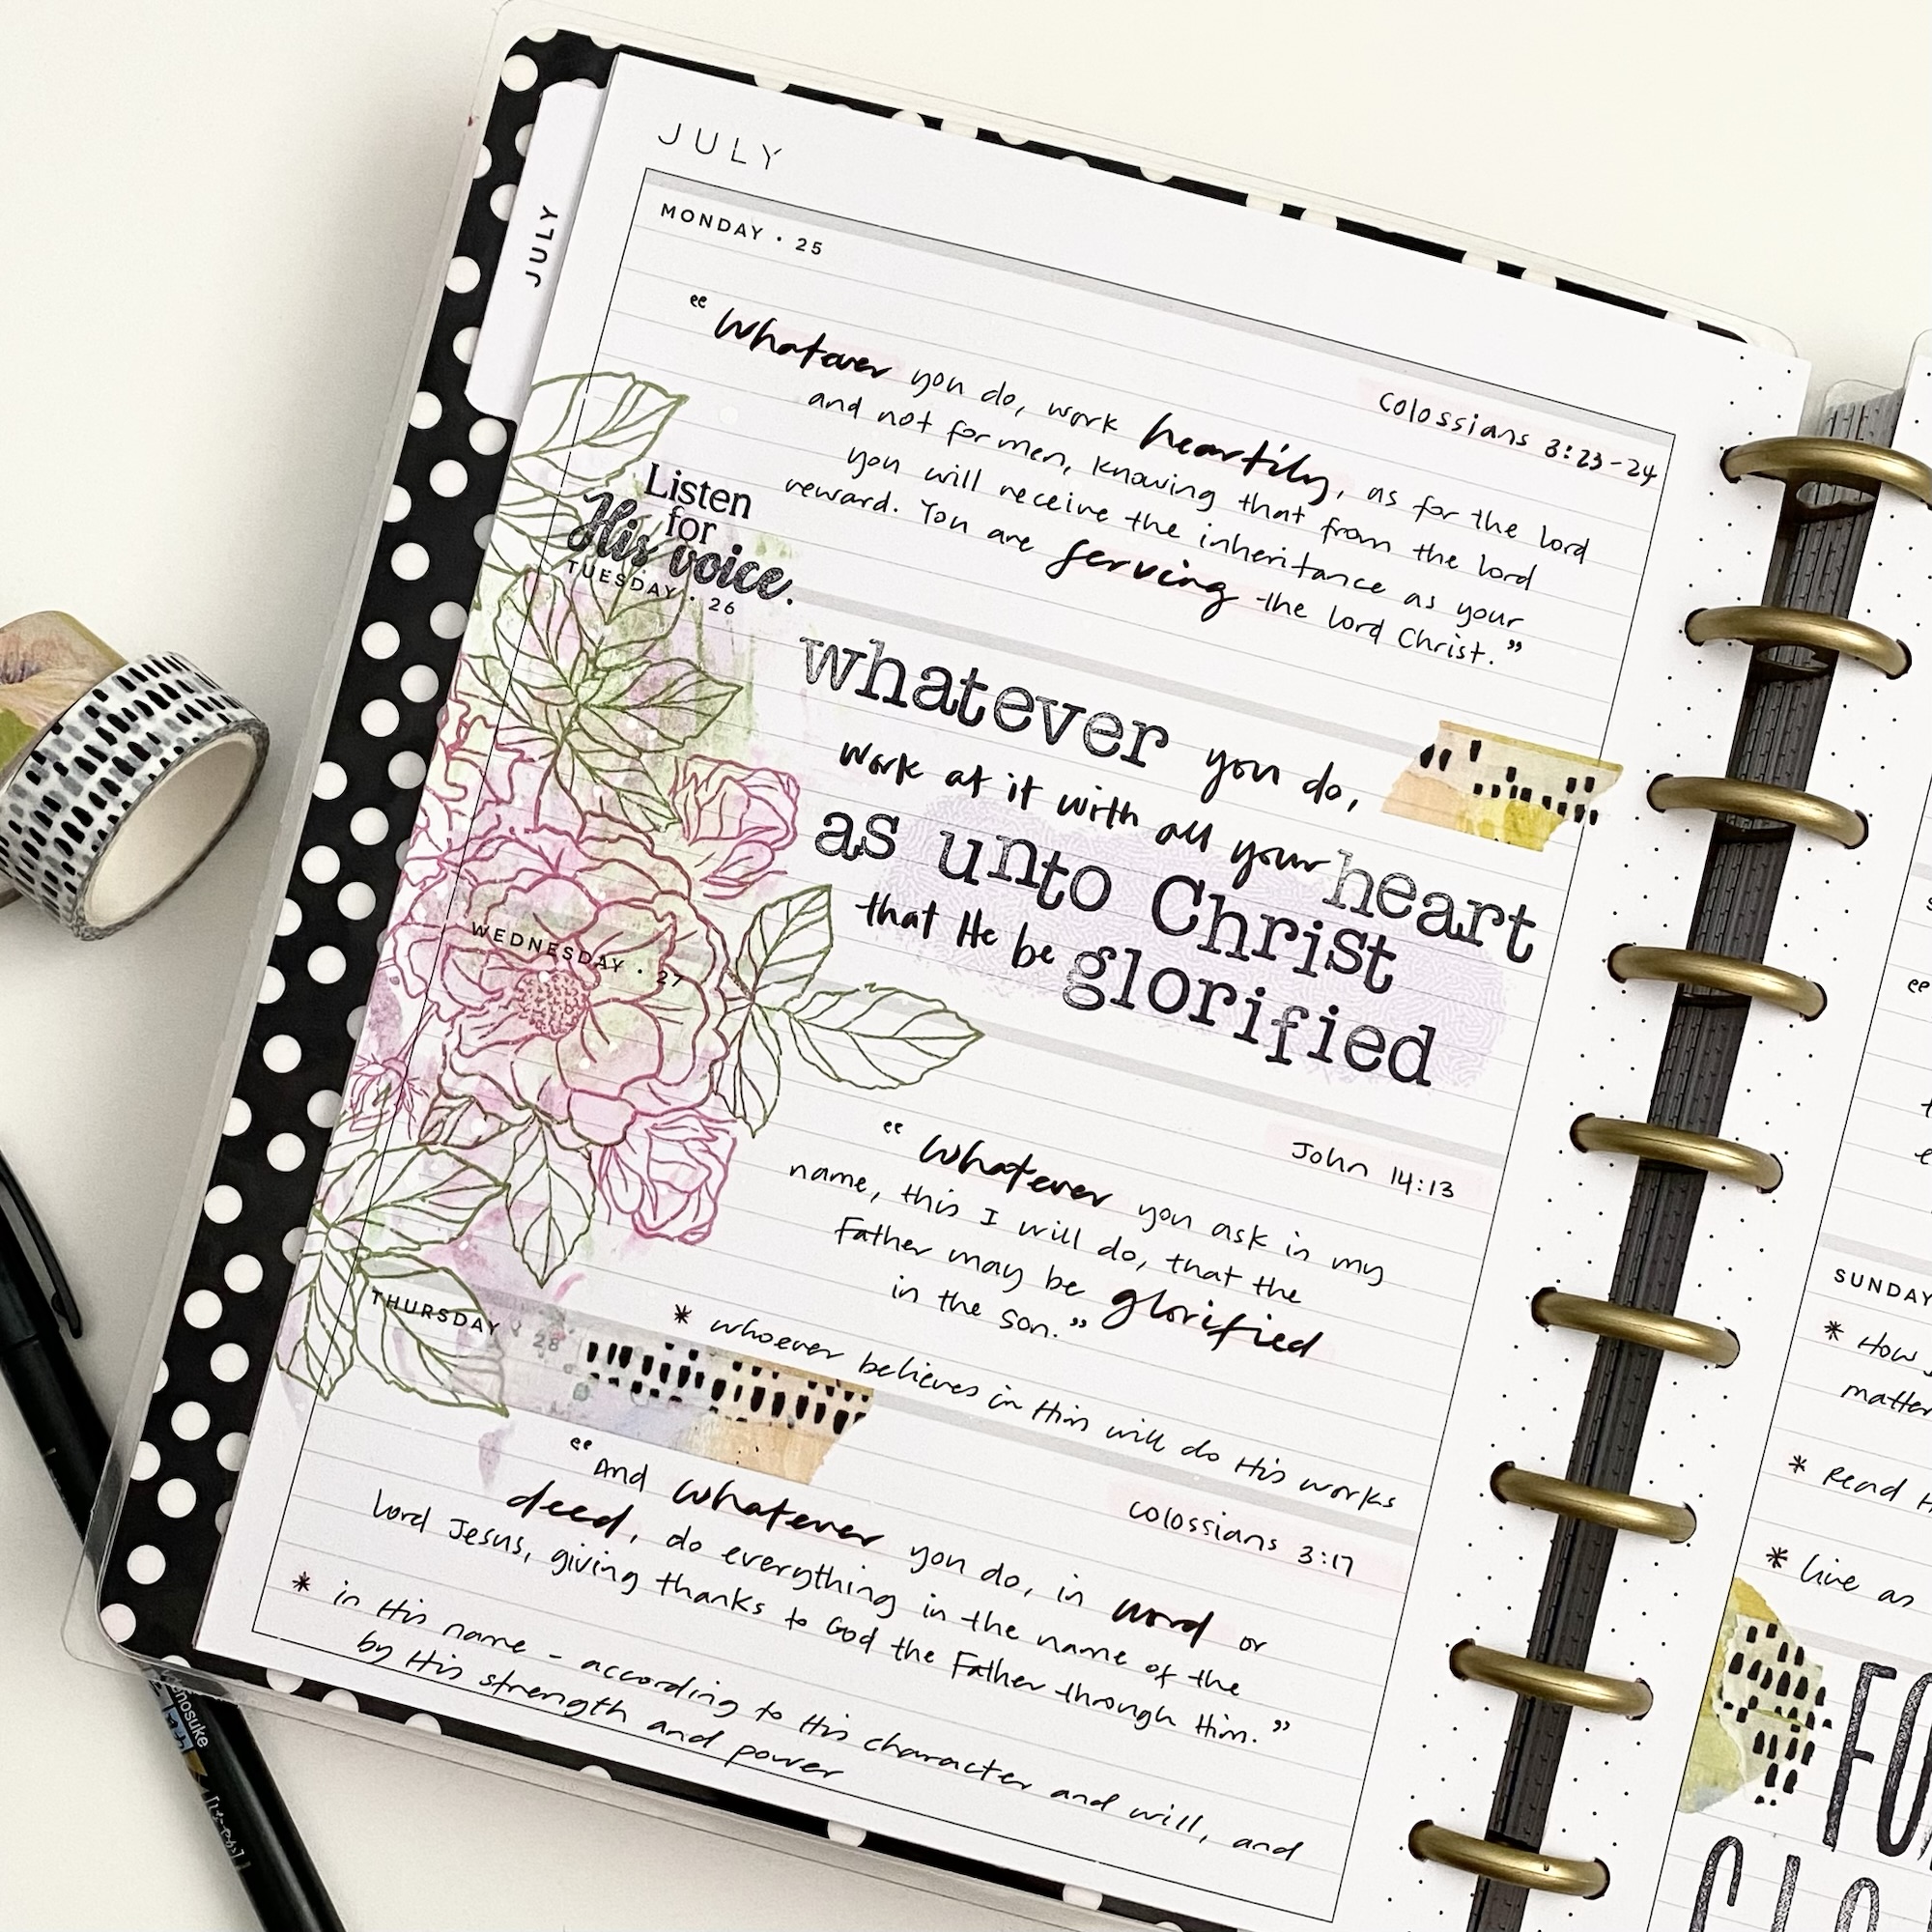 JULY
JULY
MONDAY · 25
Colossians 3:23-24
“Whatever you do, work heartily, as for the lord
and not for men, knowing that from the lord
you will receive the inheritance as your
reward. You are serving the lord Christ.”
Listen
for
His voice.
TUESDAY · 26
whatever you do,
work at it with all your heart
as unto Christ
that He be glorified
WEDNESDAY · 27
John 14:13
“Whatever you ask in my
name, this I will do, that the
Father may be glorified
in the son.”
* whoever believes in Him will do His works
THURSDAY · 28
Colossians 3:17
“And whatever you do, in word or
deed, do everything in the name of the
lord Jesus, giving thanks to God the Father through Him.”
* in His name - according to His character and will, and
by His strength and power
SUNDAY
* How
matter
* Read
* live as
FO